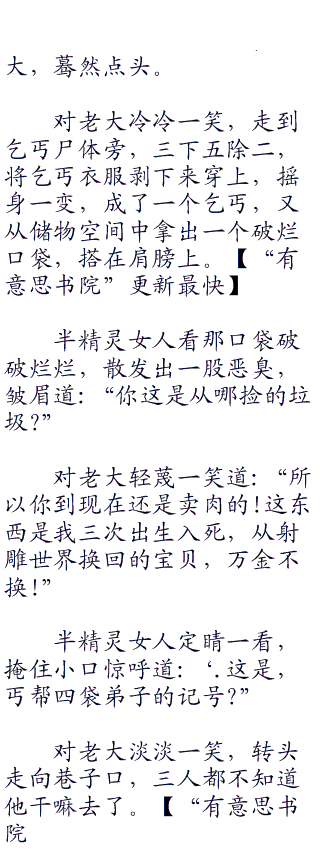 大，蓦然点头。
对老大冷冷一笑，走到
乞丐尸体旁，三下五除二，
将乞丐衣服剥下来穿上，摇
身一变，成了一个乞丐，又
从储物空间中拿出一个破烂
口袋，搭在肩膀上。【“有
意思书院”更新最快】
半精灵女人看那口袋破
破烂烂，散发出一股恶臭，
皱眉道：“你这是从哪捡的垃
圾？”
对老大轻蔑一笑道：“所
以你到现在还是卖肉的！这东
西是我三次出生入死，从射
雕世界换回的宝贝，万金不
换！”
半精灵女人定睛一看，
掩住小口惊呼道：‘．这是，
丐帮四袋弟子的记号？”
对老大淡淡一笑，转头
走向巷子口，三人都不知道
他干嘛去了。【“有意思书
院